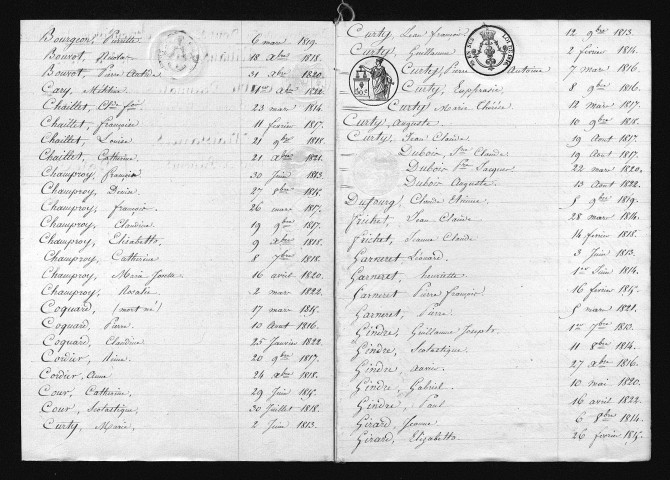 Bourgeon, Pierrette 6 mars 1819.
Bouvot, Nicolas 18 Xbre 1818.
Bouvot, Pierre 31 Xbre 1820.
Cary, 1822.
Chaillet, 23 mars 1814.
Chaillet, françoise 11 février 1817.
Chaillet, Louise 21 9bre 1818.
Chaillet, Catherine 21 Xbre 1821.
Champroy, françois 30 Juin 1813.
Champroy, Denise 27 8bre 1815.
Champroy, françois. 26 mars 1817.
Champroy, Claudine 19 9bre 1817.
Champroy, Elisabeth, 9 Xbre 1818.
Champroy, Catherine 8 7bre 1818.
Champroy, Maria Josette 16 avril 1820.
Champroy, Rosalie 2 mars 1822.
Coquard, (mort né) 17 mars 1815.
Coquard, Pierre 10 Aout 1816.
Coquard, Claudine 25 Janvier 1822.
Cordier, Reine 20 9bre 1817.
Cordier, Anne 24 Xbre 1818.
Cour, Catherine. 29 Juin 1815.
Cour, Scolastique, 30 Juillet 1818.
Curty, Marie, 2 Juin 1813.
Curty, Jean françois 12 9bre 1813.
Curty, Guillaume 2 février 1814.
Curty, Pierre Antoine 7 mars 1816.
Curty, Euphrasie 8 9bre 1816.
Curty Marie Thérèse 12 mars 1817.
Curty, Auguste 10 9bre 1818.
Curty, Jean Claude 19 Aout 1817.
Dubois, Claude 19 Aout 1817.
Dubois Jacques 22 mars 1820.
Dubois Auguste 13 Aout 1822.
Dufourg, Claude Etienne 5 9bre 1819.
Frichet, Jean Claude 28 mars 1814.
Frichet, Jeanne Claude 14 février 1818.
Garneret Léonard 3 Juin 1813.
Garneret, henriette 1er Juin 1814.
Garneret Pierre françois 16 février 1815.
Garneret, Pierre 5 mars 1821.
Gindre, Guillaume Joseph 1er 7bre 1813.
Gindre, Scolastique 11 8bre 1814.
Gindre, Xavier 27 Xbre 1816.
Gindre, Gabriel 10 mai 1820.
Gindre, Paul 16 avril 1822.
Girard, Jeanne 6 8bre 1814.
Girard, Elisabeth 26 février 1815.